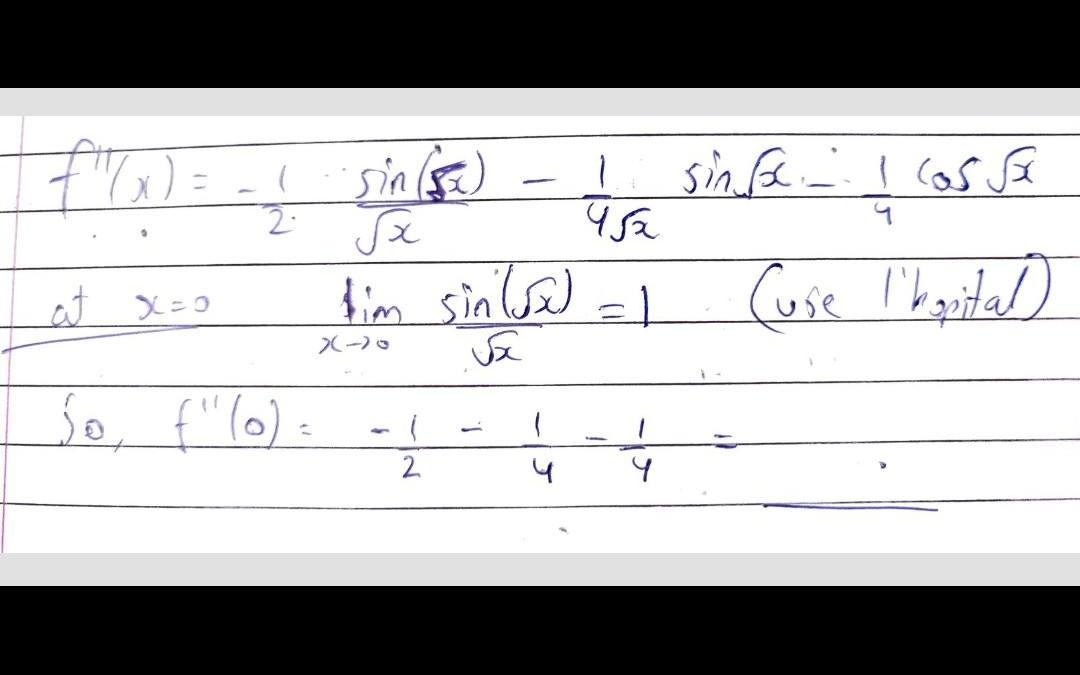 f''(x) = -1/2 sin(√x)/√x - 1/(4√x) sin√x - 1/4 cos√x
at x=0 lim x→0 sin(√x)/√x = 1 (use l'hopital)
So, f''(0) = -1/2 - 1/4 - 1/4 =